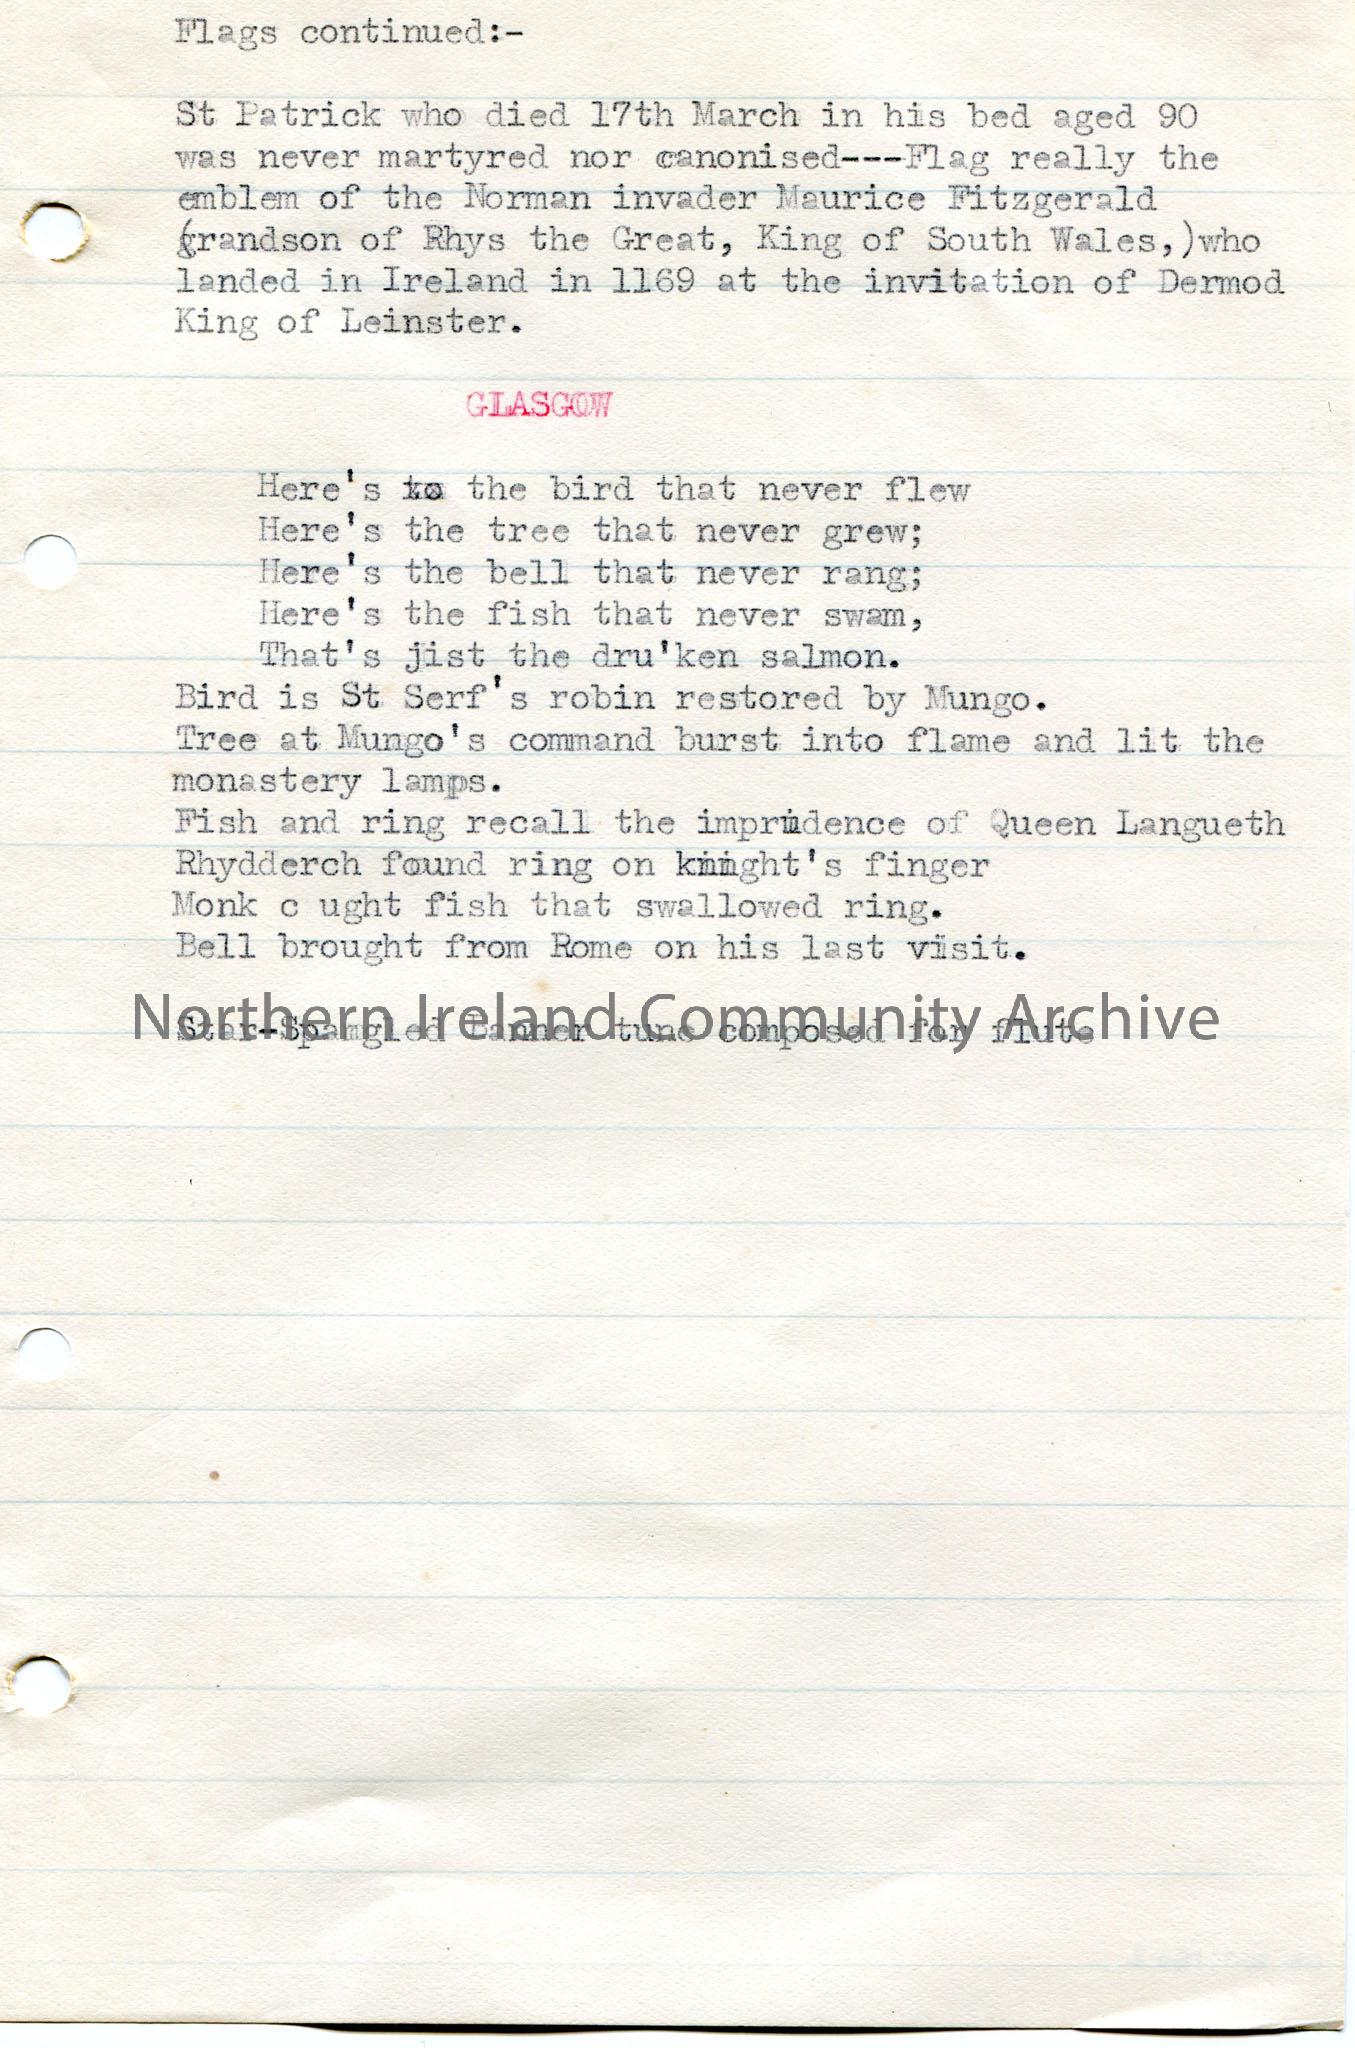 Flags continued:-
St Patrick who died 17th March in his bed aged 90
was never martyred nor canonised---Flag really the
emblem of the Norman invader Maurice Fitzgerald
(grandson of Rhys the Great, King of South Wales,)who
landed in Ireland in 1169 at the invitation of Dermod
King of Leinster.
GLASGOW
Here's the bird that never flew
Here's the tree that never grew;
Here's the bell that never rang;
Here's the fish that never swam,
That's jist the dru'ken salmon.
Bird is St Serf's robin restored by Mungo.
Tree at Mungo's command burst into flame and lit the
monastery lamps.
Fish and ring recall the imprudence of Queen Langueth
Rhydderch found ring on knight's finger
Monk c ught fish that swallowed ring.
Bell brought from Rome on his last visit.
Northern Ireland Community Archive
Star-Spamgled Banner tune composed for flute